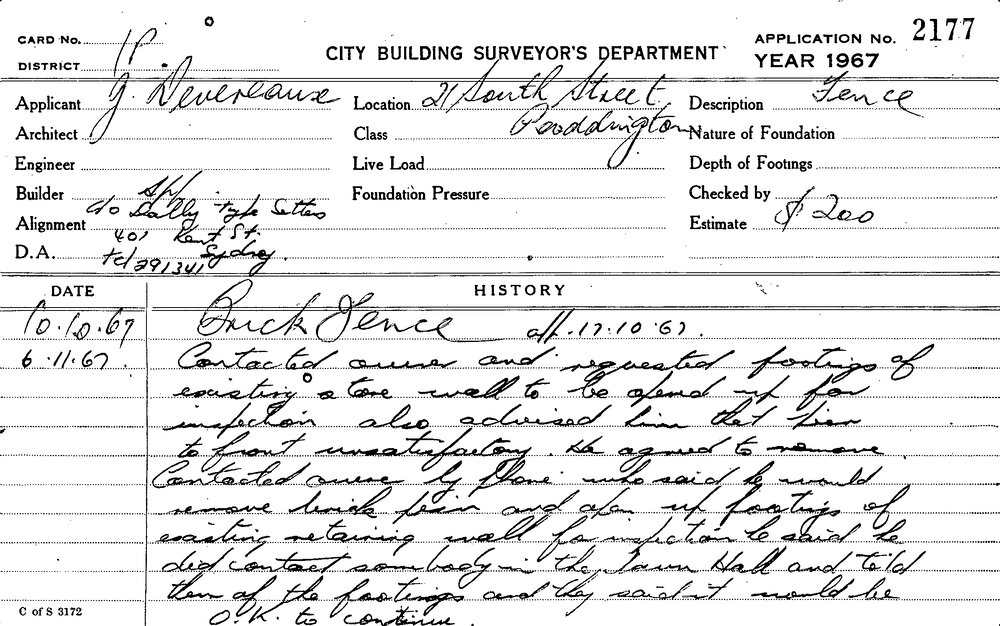 CARD No. 1P
CITY BUILDING SURVEYOR'S DEPARTMENT
APPLICATION No. 2177
DISTRICT
YEAR 1967
Applicant J. Devereaux Location 21 South Street Description Fence
Architect Class Paddington Nature of Foundation
Engineer Live Load Depth of Footings
Builder Foundation Pressure Checked by
c/o Dally Type Setters
Alignment Estimate $200
401 Kent St.
D.A. Sydney.
tel 291341
DATE HISTORY
10.10.67 Brick Fence 17.10.67.
6.11.67. Contacted owner and requested footings of
existing stone wall to be opend up for
inspection also advised him that pier
to front unsatisfactory. He agreed to remove.
Contacted owner by phone who said he would
remove brick pier and open up footings of
existing retaining wall for inspection he said he
did contact somebody in the Town Hall and told
them of the footings and they said it would be
O.K. to continue.
C of S 3172